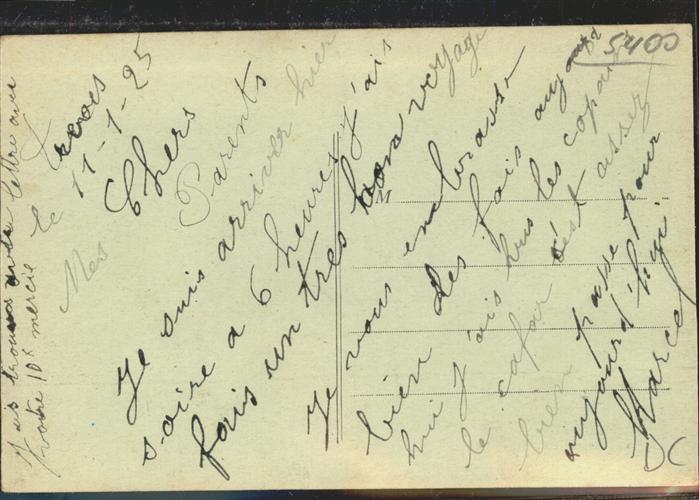 5400
Treves
le 11-1-25
Mes Chers Parents
Je suis arriver hier
soire a 6 heures j'ais
fais un tres bon voyage
Je vous enbrasse
bien des fois aujourd
hui j'ais hus les copains
le cafar s'est assez
bien passe pour
aujourd'hui.
Marcel
J'ais trouvé votre lettre avec
votre 10f mercie
DC